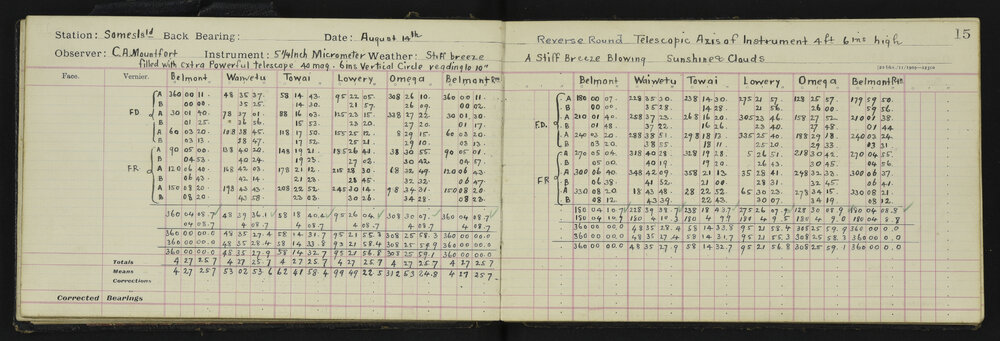 Station: Somes Isld Back Bearing: Date: August 14th
Observer: C.A. Mountfort Instrument: 5 1/4 Inch Micrometer Weather: Stiff breeze
filled with extra Powerful telescope 40 mag. 6ms Vertical Circle reading to 10"
Face. Vernier. Belmont Waiwetu Towai Lowery Omega Belmont Rm.
F.D. A 360 00 11. 48 35 37. 58 14 43. 95 22 05. 308 26 10. 360 00 11.
B 00 00. 35 25. 14 30. 21 57. 26 09. 00 02.
A 30 01 40. 78 37 01. 88 16 03. 125 23 15. 338 27 22. 30 01 30.
B 01 25. 36 56. 15 53. 23 20. 27 20. 01 17.
A 60 03 20. 108 38 45. 118 17 50. 155 25 12. 8 29 15. 60 03 20.
B 03 13. 38 47. 17 52. 25 21. 29 10. 03 13.
F.R. A 90 05 00. 138 40 20. 148 19 21. 185 26 41. 38 30 55. 90 05 10.
B 04 53. 40 24. 19 23. 27 02. 30 42. 04 57.
A 120 06 40. 168 42 03. 178 21 12. 215 28 30. 68 32 49. 120 06 43.
B 06 43. 42 14. 21 23. 28 45. 32 32. 06 47.
A 150 08 20. 198 43 43. 208 22 52. 245 30 14. 98 34 31. 150 08 20.
B 08 20. 43 58. 23 03. 30 26. 34 28. 08 23.
360 04 08.7 48 39 36.1 58 18 40.4 95 26 04. 308 30 07. 360 04 08.7
04 08.7 4 08.7 4 08.7 4 08.7 4 08.7 4 08.7
360 00 00.0 48 35 27.4 58 14 31.7 95 21 55.3 308 25 58.3 360 00 00.0
360 00 00.0 48 35 28.4 58 14 33.8 95 21 58.4 308 25 59.9 360 00 00.0
360 00 00.0 48 35 27.9 58 14 32.7 95 21 56.8 308 25 59.1 360 00 00.0
Totals 4 27 25.7 4 27 25.7 4 27 25.7 4 27 25.7 4 27 25.7 4 27 25.7
Means 4 27 25.7 53 02 53.6 62 41 58.4 99 49 22.5 312 53 24.8 4 27 25.7
Corrections
Corrected Bearings
15
Reverse Round Telescopic Axis of Instrument 4ft 6ins high
A Stiff Breeze Blowing Sunshine & Clouds
Belmont Waiwetu Towai Lowery Omega Belmont Rm.
F.D. A 180 00 07. 228 35 30. 238 14 30. 275 21 57. 128 25 57. 179 59 50.
B 00 00. 35 28. 14 28. 21 56. 26 00. 59 56.
A 210 01 40. 258 37 23. 268 16 20. 305 23 46. 158 27 52. 210 01 38.
B 01 48. 37 22. 16 26. 23 40. 27 48. 01 44.
A 240 03 20. 288 38 51. 298 18 13. 335 25 40. 188 29 18. 240 03 24.
B 03 20. 38 55. 18 11. 25 20. 29 33. 03 31.
F.R. A 270 05 04. 318 40 28. 328 19 28. 5 26 51. 218 30 42. 270 04 55.
B 05 00. 40 19. 19 20. 26 43. 30 45. 04 56.
A 300 06 40. 348 42 09. 358 21 13. 35 28 41. 248 32 33. 300 06 37.
B 06 38. 41 52. 21 00. 28 31. 32 45. 06 41.
A 330 08 20. 18 43 48. 28 22 52. 65 30 23. 278 34 15. 330 08 21.
B 08 12. 43 39. 22 43. 30 07. 34 19. 08 12.
180 04 10.7 228 39 38.7 238 18 43.7 275 26 07.9 128 30 08.9 180 04 08.8
180 04 10.9 180 4 10.3 180 4 9.9 180 4 9.5 180 4 9.0 180 04 8.8
360 00 00.0 48 35 28.4 58 14 33.8 95 21 58.4 308 25 59.9 360 00 0.0
360 00 00.0 48 35 27.4 58 14 31.7 95 21 55.3 308 25 58.3 360 00 0.0
360 00 00.0 48 35 27.9 58 14 32.7 95 21 56.8 308 25 59.1 360 00 0.0